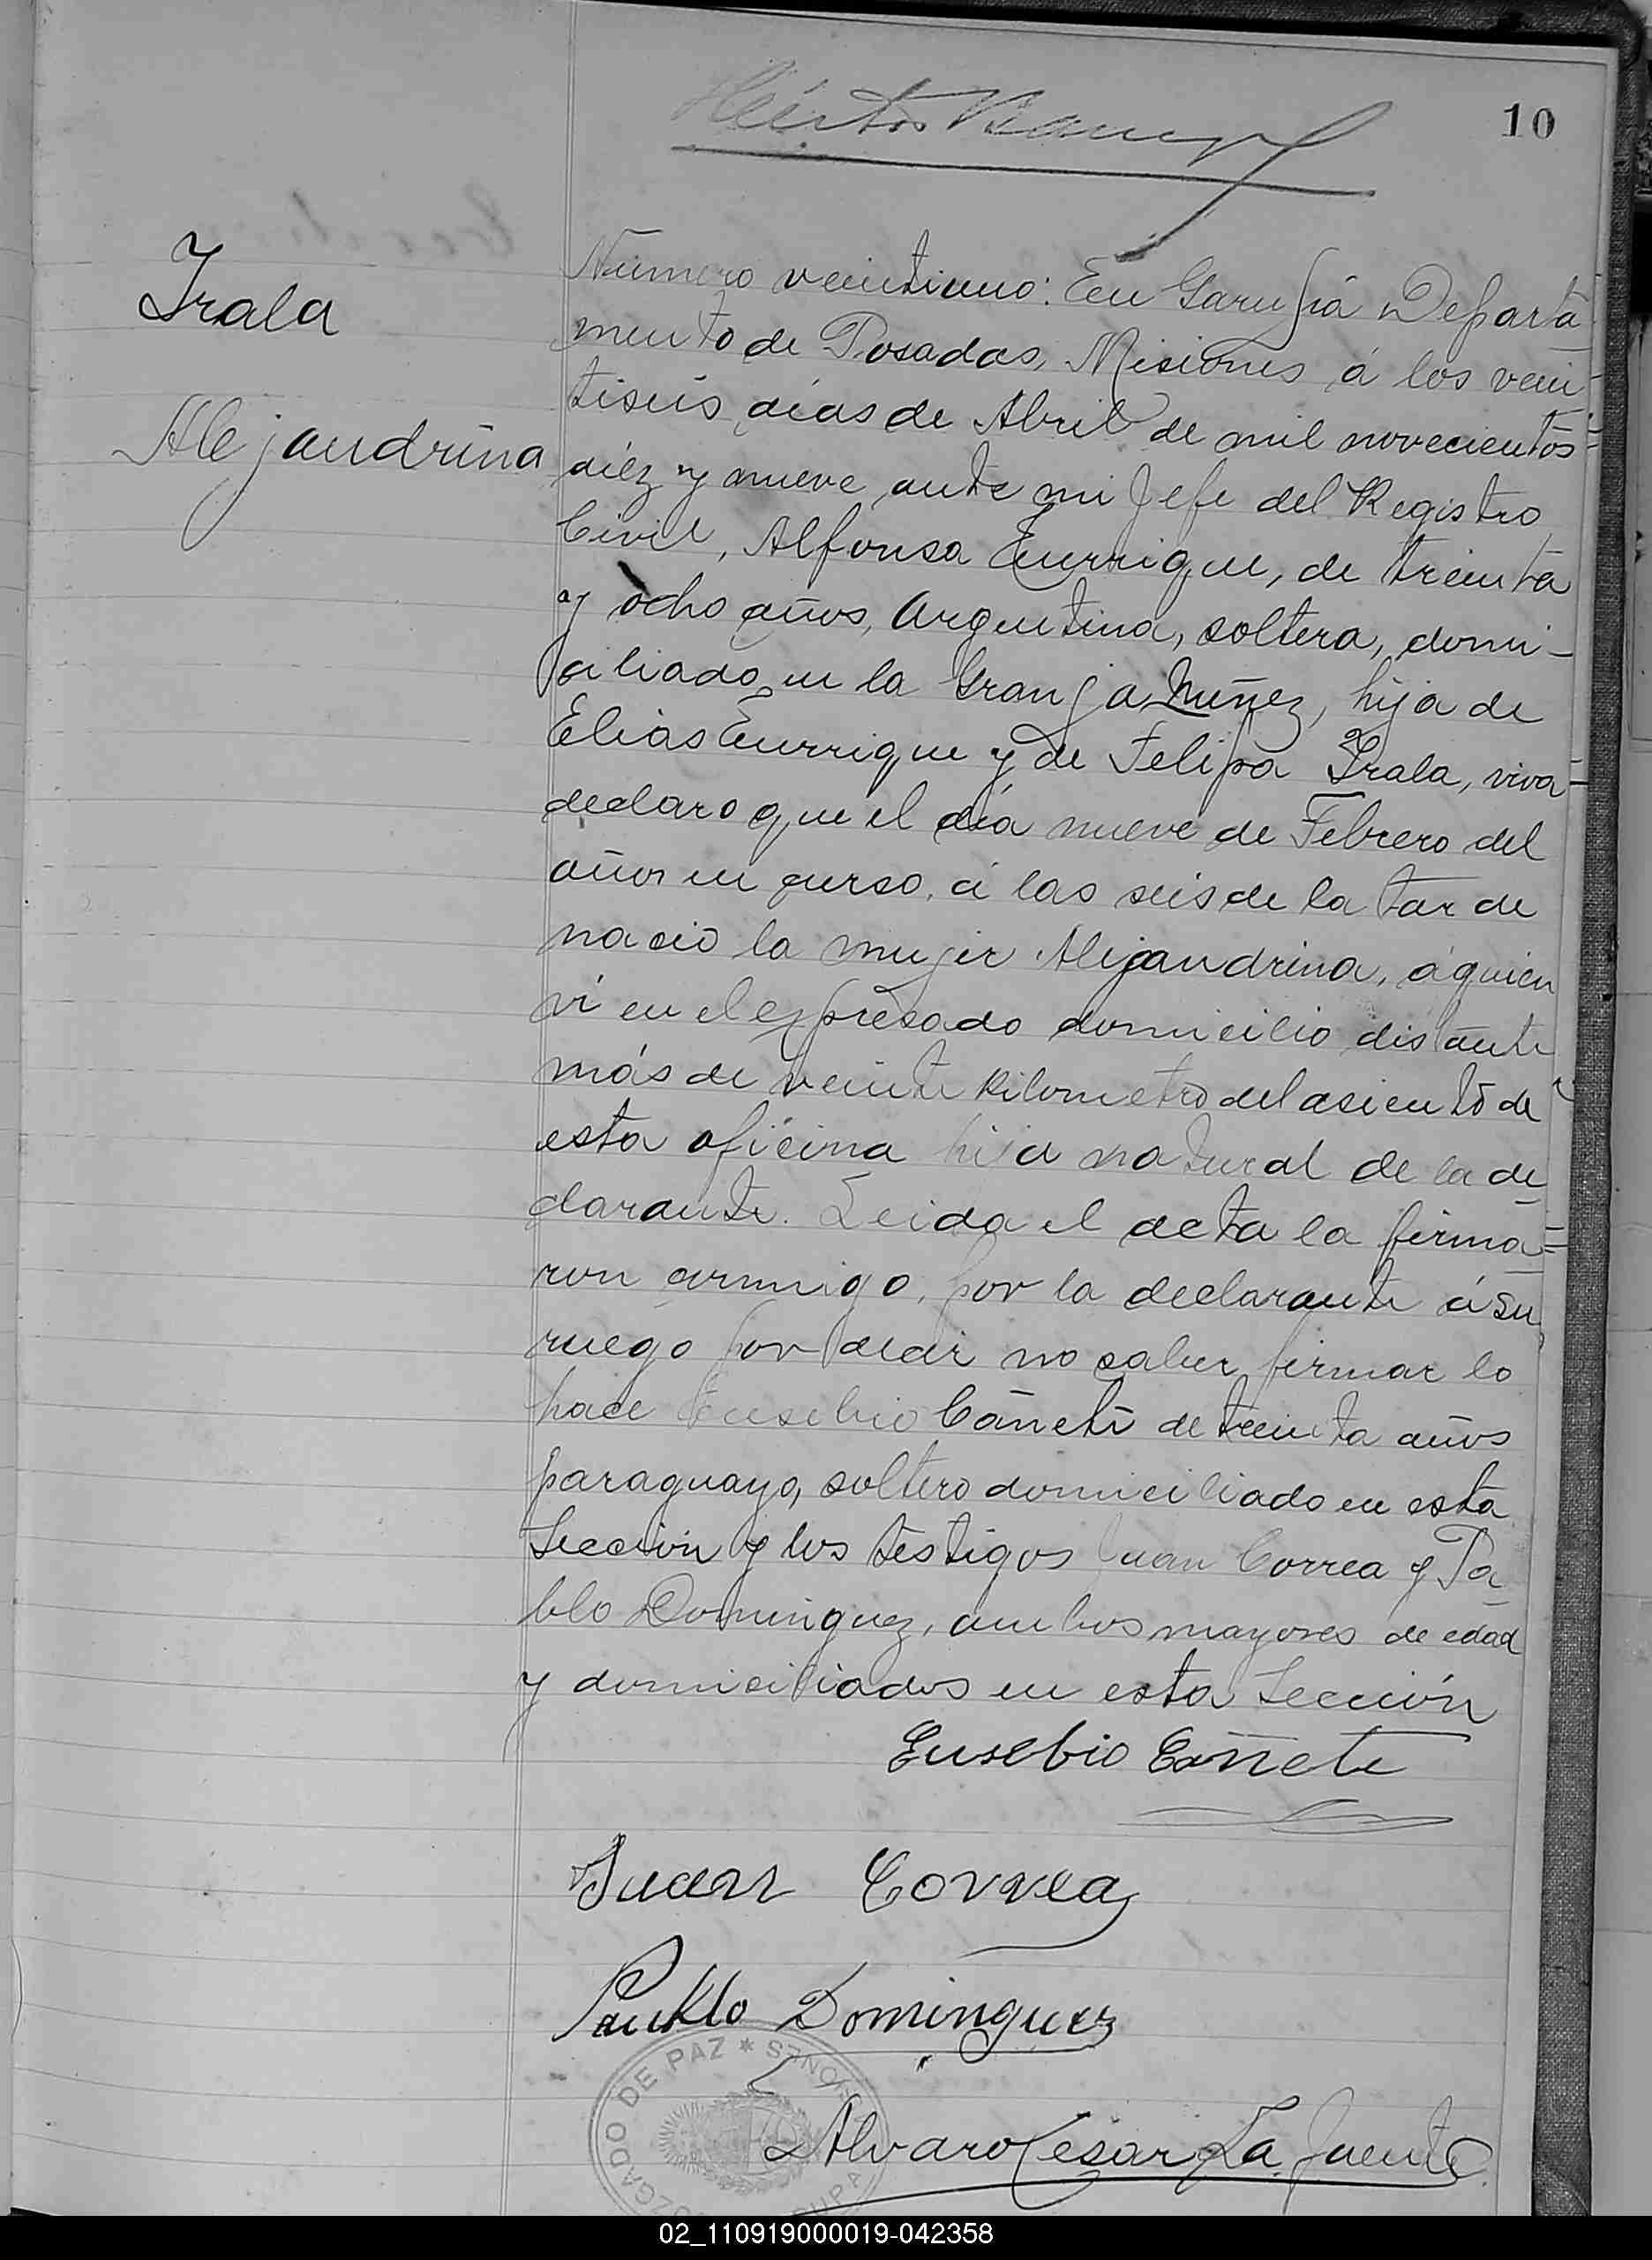 10
Irala
Alejandrina
Número veintiuno: En Garupá Departa-
mento de Posadas, Misiones á los vein-
tiseis días de Abril de mil novecientos
diéz y nueve ante mi Jefe del Registro
Civil, Alfonsa Enrrique, de treinta
y ocho años, Argentina, soltera, domi-
ciliado en la Granja Nuñez, hija de
Elias Enrrique y de Felipa Irala, viva-
declaro que el día nueve de Febrero del
años en curso, á las seis de la tarde
nació la mujer Alejandrina, á quien
ví en el expresado domicilio distante
más de veinte kilometro del asiento de
esta oficina hija natural de la de-
clarante. Leida el acta la firma-
ron conmigo, por la declarante á su
ruego por decir no saber firmar lo
hace Eusebio Cañete de treinta años
paraguayo, soltero domiciliado en esta
Sección y los testigos Juan Correa y Pa-
blo Dominguez, ambos mayores de edad
y domiciliados en esta Sección
Eusebio Cañete
Juan Correa
Pablo Dominguez
JUZGADO DE PAZ * 
Alvaro Cesar La Fuente
02_110919000019-042358